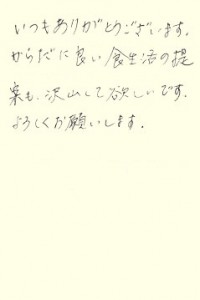 いつもありがとうございます。
からだに良い食生活の提
案も、沢山して欲しいです。
よろしくお願いします.